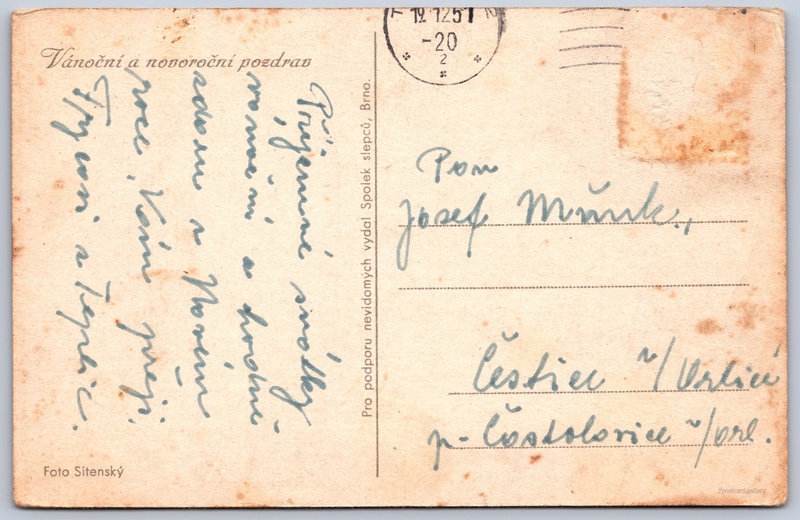 Vánoční a novoroční pozdrav
Příjemné svátky
vánoční a hodně
zdaru v Novém
roce, Vám přejí
z Teplic.
Pro podporu nevidomých vydal Spolek slepců, Brno.
Foto Sitenský
19 1251
-20
2
Pan
Josef Munk.,
Čestice n/Orlicí
p. Častolovice n/orl.